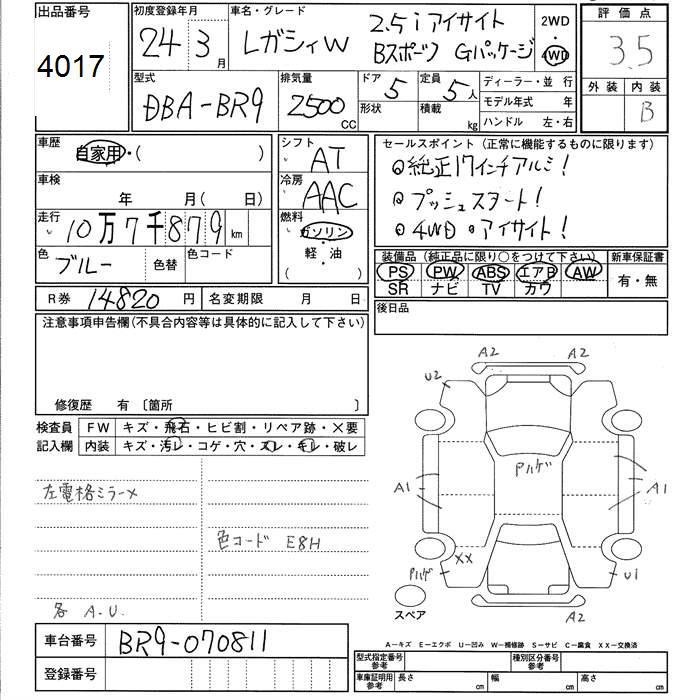 出品番号
4017
初度登録年月
24 3月
車名・グレード
レガシィW
2.5i アイサイト
Bスポーツ Gパッケージ
2WD
・
4WD
評価点
3.5
外装 内装
B
型式
DBA-BR9
排気量
2500
CC
ドア
5
形状
定員
5人
積載
kg
ディーラー・並 行
モデル年式 年
ハンドル 左・右
車歴
自家用・( )
シフト
AT
車検
年 月( 日)
冷房
AAC
走行
10万7千879km
燃料
ガソリン
・
軽・油
( )
色
ブルー
色替
色コード
R券 14820円
名変期限 月 日
セールスポイント (正常に機能するものに限ります)
◎純正17インチアルミ!
◎プッシュスタート!
◎4WD ◎アイサイト!
装備品 (純正品に限り○をつけて下さい)
新車保証書
PS PW ABS エアB AW
SR ナビ TV カワ
有・無
後日品
注意事項申告欄(不具合内容等は具体的に記入して下さい)
修復歴 有 〔箇所 〕
検査員
記入欄
FW キズ・飛石・ヒビ割・リペア跡・×要
内装 キズ・汚レ・コゲ・穴・スレ・キレ・破レ
左電格ミラー×
色コード E8H
各 A.U.
A2 A2
U2
Pハゲ
A1 A1
XX
Pハゲ
U1
A2
スペア
車台番号 BR9-070811
登録番号
A－キズ E－エクボ U－凹み W－補修跡 S－サビ C－腐食 XX－交換済
型式指定番号
参考
種別区分番号
参考
車庫証明用
参考
長さ cm 幅 cm 高さ cm